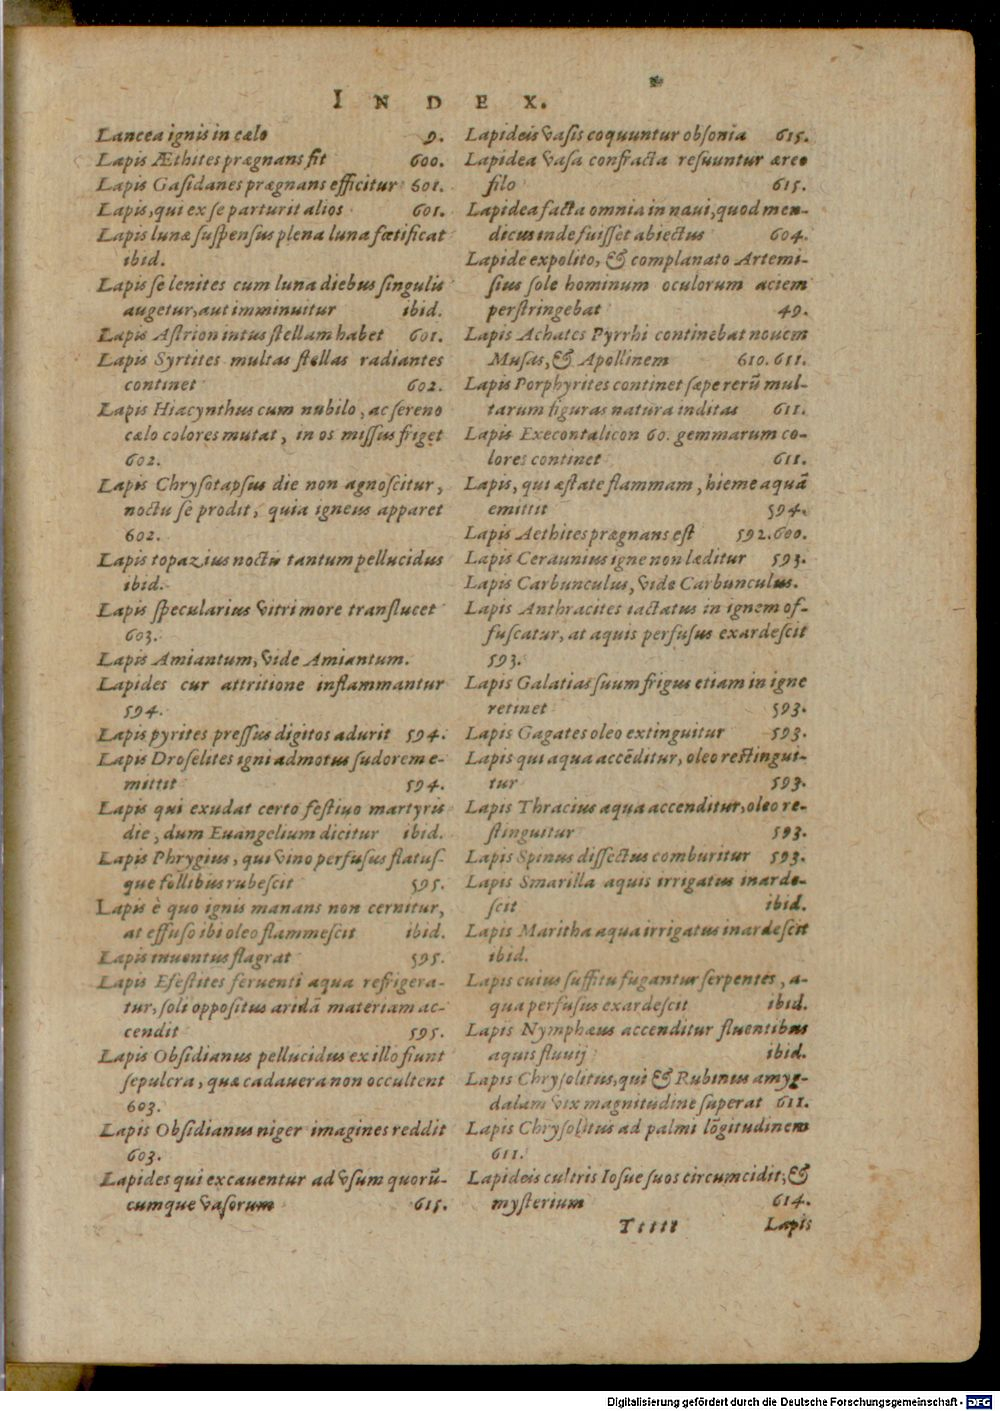 INDEX.
Lancea ignis in cælo 9.
Lapis Æthites prægnans fit 600.
Lapis Gasidanes prægnans efficitur 601.
Lapis, qui ex se parturit alios 601.
Lapis lunæ suspensus plena luna fœtificat
ibid.
Lapis selenites cum luna diebus singulis
augetur, aut imminuitur ibid.
Lapis Astrion intus stellam habet 601.
Lapis Syrtites multas stellas radiantes
continet 602.
Lapis Hiacynthus cum nubilo, ac sereno
cælo colores mutat, in os missus friget
602.
Lapis Chrysotapsus die non agnoscitur,
noctu se prodit, quia igneus apparet
602.
Lapis topazius noctu tantum pellucidus
ibid.
Lapis specularius vitri more translucet
603.
Lapis Amiantum, vide Amiantum.
Lapides cur attritione inflammantur
594.
Lapis pyrites pressus digitos adurit 594.
Lapis Droselites igni admotus sudorem e-
mittit 594.
Lapis qui exudat certo festiuo martyris
die, dum Euangelium dicitur ibid.
Lapis Phrygius, qui vino perfusus flatus-
que follibus rubescit 595.
Lapis è quo ignis manans non cernitur,
at effuso ibi oleo flammescit ibid.
Lapis inuentus flagrat 595.
Lapis Efestites feruenti aqua refrigera-
tur, soli oppositus aridā materiam ac-
cendit 595.
Lapis Obsidianus pellucidus ex illo fiunt
sepulcra, quæ cadauera non occultent
603.
Lapis Obsidianus niger imagines reddit
603.
Lapides qui excauentur ad vsum quorū-
cumque vasorum 615.
Lapideis vasis coquuntur obsonia 615.
Lapidea vasa confracta resuuntur æreo
filo 615.
Lapidea facta omnia in naui, quod men-
dicus inde fuisset abiectus 604.
Lapide expolito, & complanato Artemi-
sius sole hominum oculorum aciem
perstringebat 49.
Lapis Achates Pyrrhi continebat nouem
Musas, & Apollinem 610. 611.
Lapis Porphyrites continet sæpe rerū mul-
tarum figuras natura inditas 611.
Lapis Execontalicon 60. gemmarum co-
lores continet 611.
Lapis, qui æstate flammam, hieme aquā
emittit 594.
Lapis Aethites prægnans est 592. 600.
Lapis Ceraunius igne non læditur 593.
Lapis Carbunculus, vide Carbunculus.
Lapis Anthracites iactatus in ignem of-
fuscatur, at aquis perfusus exardescit
593.
Lapis Galatias suum frigus etiam in igne
retinet 593.
Lapis Gagates oleo extinguitur 593.
Lapis qui aqua accēditur, oleo restingui-
tur 593.
Lapis Thracius aqua accenditur, oleo re-
stinguitur 593.
Lapis Spinus dissectus comburitur 593.
Lapis Smarilla aquis irrigatus inarde-
scit ibid.
Lapis Maritha aqua irrigatus inardescit
ibid.
Lapis cuius suffitu fugantur serpentes, a-
qua perfusus exardescit ibid.
Lapis Nymphæus accenditur fluentibus
aquis fluuij ibid.
Lapis Chrysolitus, qui & Rubinus amyg-
dalam vix magnitudine superat 611.
Lapis Chrysolitus ad palmi lōgitudinem
611.
Lapideis cultris Iosue suos circumcidit, &
mysterium 614.
Ttttt Lapis
Digitalisierung gefördert durch die Deutsche Forschungsgemeinschaft - DFG